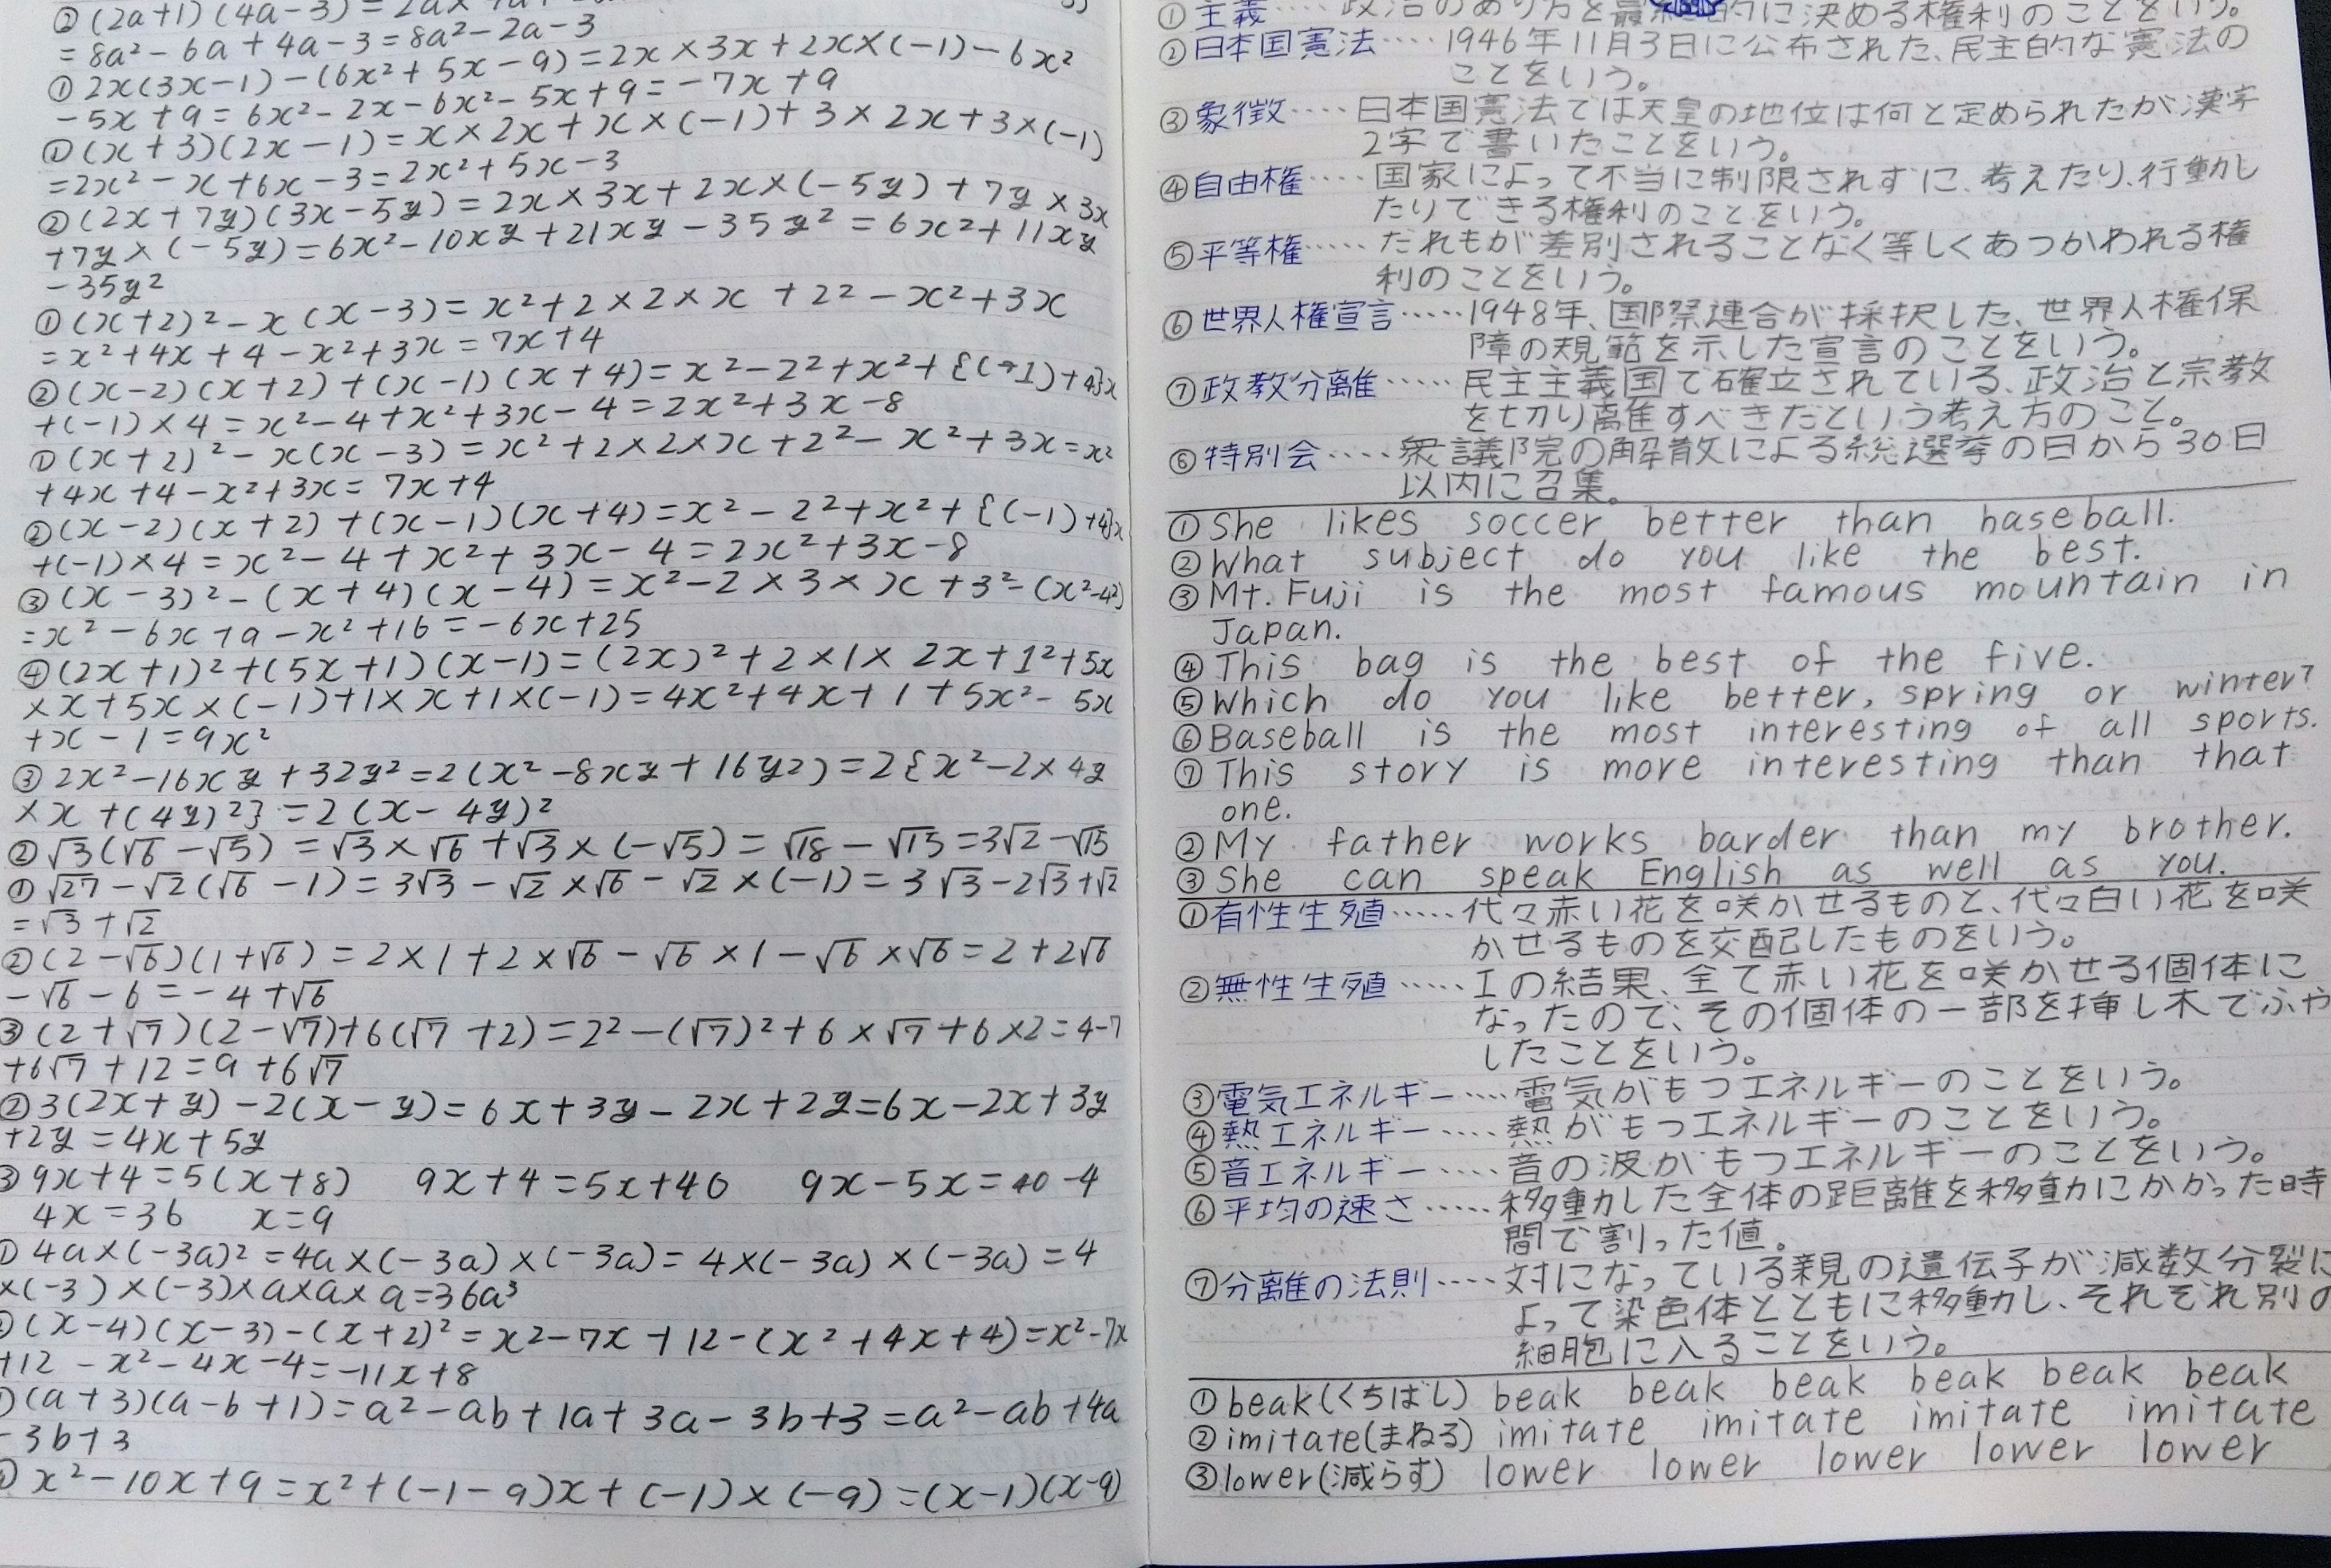 ②(2a+1)(4a-3)=2a×
=8a²-6a+4a-3=8a²-2a-3
①2x(3x-1)-(6x²+5x-9)=2x×3x+2x×(-1)-6x²
-5x+9=6x²-2x-6x²-5x+9=-7x+9
①(x+3)(2x-1)=x×2x+x×(-1)+3×2x+3×(-1)
=2x²-x+6x-3=2x²+5x-3
②(2x+7y)(3x-5y)=2x×3x+2x×(-5y)+7y×3x
+7y×(-5y)=6x²-10xy+21xy-35y²=6x²+11xy
-35y²
①(x+2)²-x(x-3)=x²+2×2×x+2²-x²+3x
=x²+4x+4-x²+3x=7x+4
②(x-2)(x+2)+(x-1)(x+4)=x²-2²+x²+{(-1)+4}x
+(-1)×4=x²-4+x²+3x-4=2x²+3x-8
①(x+2)²-x(x-3)=x²+2×2×x+2²-x²+3x=x²
+4x+4-x²+3x=7x+4
②(x-2)(x+2)+(x-1)(x+4)=x²-2²+x²+{(-1)+4}x
+(-1)×4=x²-4+x²+3x-4=2x²+3x-8
③(x-3)²-(x+4)(x-4)=x²-2×3×x+3²-(x²-4²)
=x²-6x+9-x²+16=-6x+25
④(2x+1)²+(5x+1)(x-1)=(2x)²+2×1×2x+1²+5x
×x+5x×(-1)+1×x+1×(-1)=4x²+4x+1+5x²-5x
+x-1=9x²
③2x²-16xy+32y²=2(x²-8xy+16y²)=2{x²-2×4y
×x+(4y)²}=2(x-4y)²
②√3(√6-√5)=√3×√6+√3×(-√5)=√18-√15=3√2-√15
①√27-√2(√6-1)=3√3-√2×√6-√2×(-1)=3√3-2√3+√2
=√3+√2
②(2-√6)(1+√6)=2×1+2×√6-√6×1-√6×√6=2+2√6
-√6-6=-4+√6
③(2+√7)(2-√7)+6(√7+2)=2²-(√7)²+6×√7+6×2=4-7
+6√7+12=9+6√7
②3(2x+y)-2(x-y)=6x+3y-2x+2y=6x-2x+3y
+2y=4x+5y
③9x+4=5(x+8) 9x+4=5x+40 9x-5x=40-4
4x=36 x=9
①4a×(-3a)²=4a×(-3a)×(-3a)=4×(-3a)×(-3a)=4
×(-3)×(-3)×a×a×a=36a³
(x-4)(x-3)-(x+2)²=x²-7x+12-(x²+4x+4)=x²-7x
+12-x²-4x-4=-11x+8
(a+3)(a-b+1)=a²-ab+1a+3a-3b+3=a²-ab+4a
-3b+3
x²-10x+9=x²+(-1-9)x+(-1)×(-9)=(x-1)(x-9)
①主義‥‥政治のあり方を最終的に決める権利のことをいう。
②日本国憲法‥‥1946年11月3日に公布された、民主的な憲法の
ことをいう。
③象徴‥‥日本国憲法では天皇の地位は何と定められたが漢字
2字で書いたことをいう。
④自由権‥‥国家によって不当に制限されずに、考えたり、行動し
たりできる権利のことをいう。
⑤平等権‥‥だれもが差別されることなく等しくあつかわれる権
利のことをいう。
⑥世界人権宣言‥‥1948年、国際連合が採択した、世界人権保
障の規範を示した宣言のことをいう。
⑦政教分離‥‥民主主義国で確立されている、政治と宗教
を切り離すべきだという考え方のこと。
⑥特別会‥‥衆議院の解散による総選挙の日から30日
以内に召集。
①She likes soccer better than baseball.
②What subject do you like the best.
③Mt. Fuji is the most famous mountain in
Japan.
④This bag is the best of the five.
⑤Which do you like better, spring or winter?
⑥Baseball is the most interesting of all sports.
⑦This story is more interesting than that
one.
②My father works barder than my brother.
③She can speak English as well as you.
①有性生殖‥‥代々赤い花を咲かせるものと、代々白い花を咲
かせるものを交配したものをいう。
②無性生殖‥‥Iの結果、全て赤い花を咲かせる個体に
なったので、その個体の一部を挿し木でふや
したことをいう。
③電気エネルギー‥‥電気がもつエネルギーのことをいう。
④熱エネルギー‥‥熱がもつエネルギーのことをいう。
⑤音エネルギー‥‥音の波がもつエネルギーのことをいう。
⑥平均の速さ‥‥移動した全体の距離を移動にかかった時
間で割った値。
⑦分離の法則‥‥対になっている親の遺伝子が減数分裂に
よって染色体とともに移動し、それぞれ別の
細胞に入ることをいう。
①beak(くちばし) beak beak beak beak beak beak
②imitate(まねる) imitate imitate imitate imitate
③lower(減らす) lower lower lower lower lower